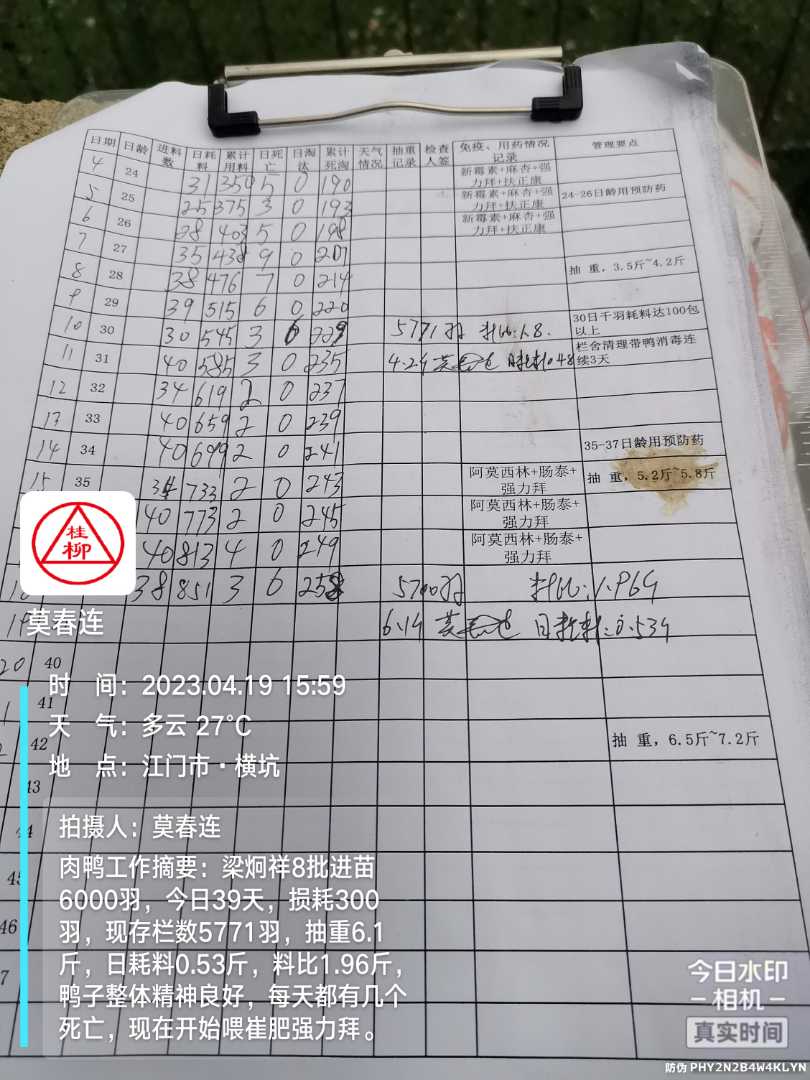 日期 日龄 进料数 日耗料 累计用料 日死亡 日淘达 累计死淘 天气情况 抽重记录 检查人签 免疫、用药情况记录 管理要点
4 24 31 350 5 0 190 新霉素+麻杏+强力拜+扶正康
5 25 25 375 3 0 193 新霉素+麻杏+强力拜+扶正康 24-26日龄用预防药
6 26 28 403 5 0 198 新霉素+麻杏+强力拜+扶正康
7 27 35 438 9 0 207
8 28 38 476 7 0 214 抽 重,3.5斤~4.2斤
9 29 39 515 6 0 220
10 30 30 545 3 6 229 5771羽 料比:1.8. 30日千羽耗料达100包以上
11 31 40 585 3 0 235 4.24 日耗料0.48 栏舍清理带鸭消毒连续3天
12 32 34 619 2 0 237
13 33 40 659 2 0 239
14 34 40 699 2 0 241 35-37日龄用预防药
15 35 34 733 2 0 243 阿莫西林+肠泰+强力拜 抽 重,5.2斤~5.8斤
40 773 2 0 245 阿莫西林+肠泰+强力拜
40 813 4 0 249 阿莫西林+肠泰+强力拜
38 851 3 6 258 5700羽 料比:1.964
19 6.14 日耗料:0.534
20 40
41
42 抽 重,6.5斤~7.2斤
43
44
45
46
桂柳
莫春连
时 间:2023.04.19 15:59
天 气:多云 27℃
地 点:江门市·横坑
拍摄人:莫春连
肉鸭工作摘要:梁炯祥8批进苗
6000羽,今日39天,损耗300
羽,现存栏数5771羽,抽重6.1
斤,日耗料0.53斤,料比1.96斤,
鸭子整体精神良好,每天都有几个
死亡,现在开始喂崔肥强力拜。
今日水印
-相机-
真实时间
防伪 PHY2N2B4W4KLYN